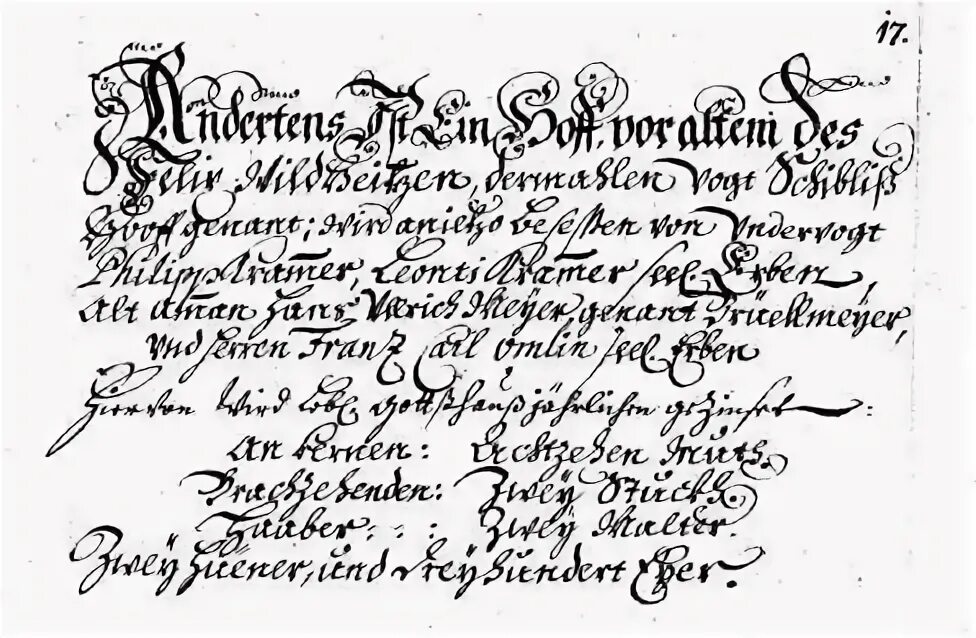 17.
Andertens Ist Ein Hoff, vor altem des
Felix Wildbeitzen, dermahlen Vogt Schibliß
Hooff genant; wird anietzo besessen von Undervogt
Philipp Kram̄er, Leonti Kram̄er seel. Erben,
Alt Am̄an Hans Ulrich Meÿer, genant Brüellmeÿer,
und Herren Frantz Carl Omlin seel. Erben
Hiervon Wird Lobl. Gottßhauß jährlichen gezinset:
An Kernen: Achtzehen Mutt.
Brachzehenden: Zweÿ Stuckh.
Haaber: : : Zweÿ Malter.
Zweÿ Hüener, und dreÿhundert Eÿer.